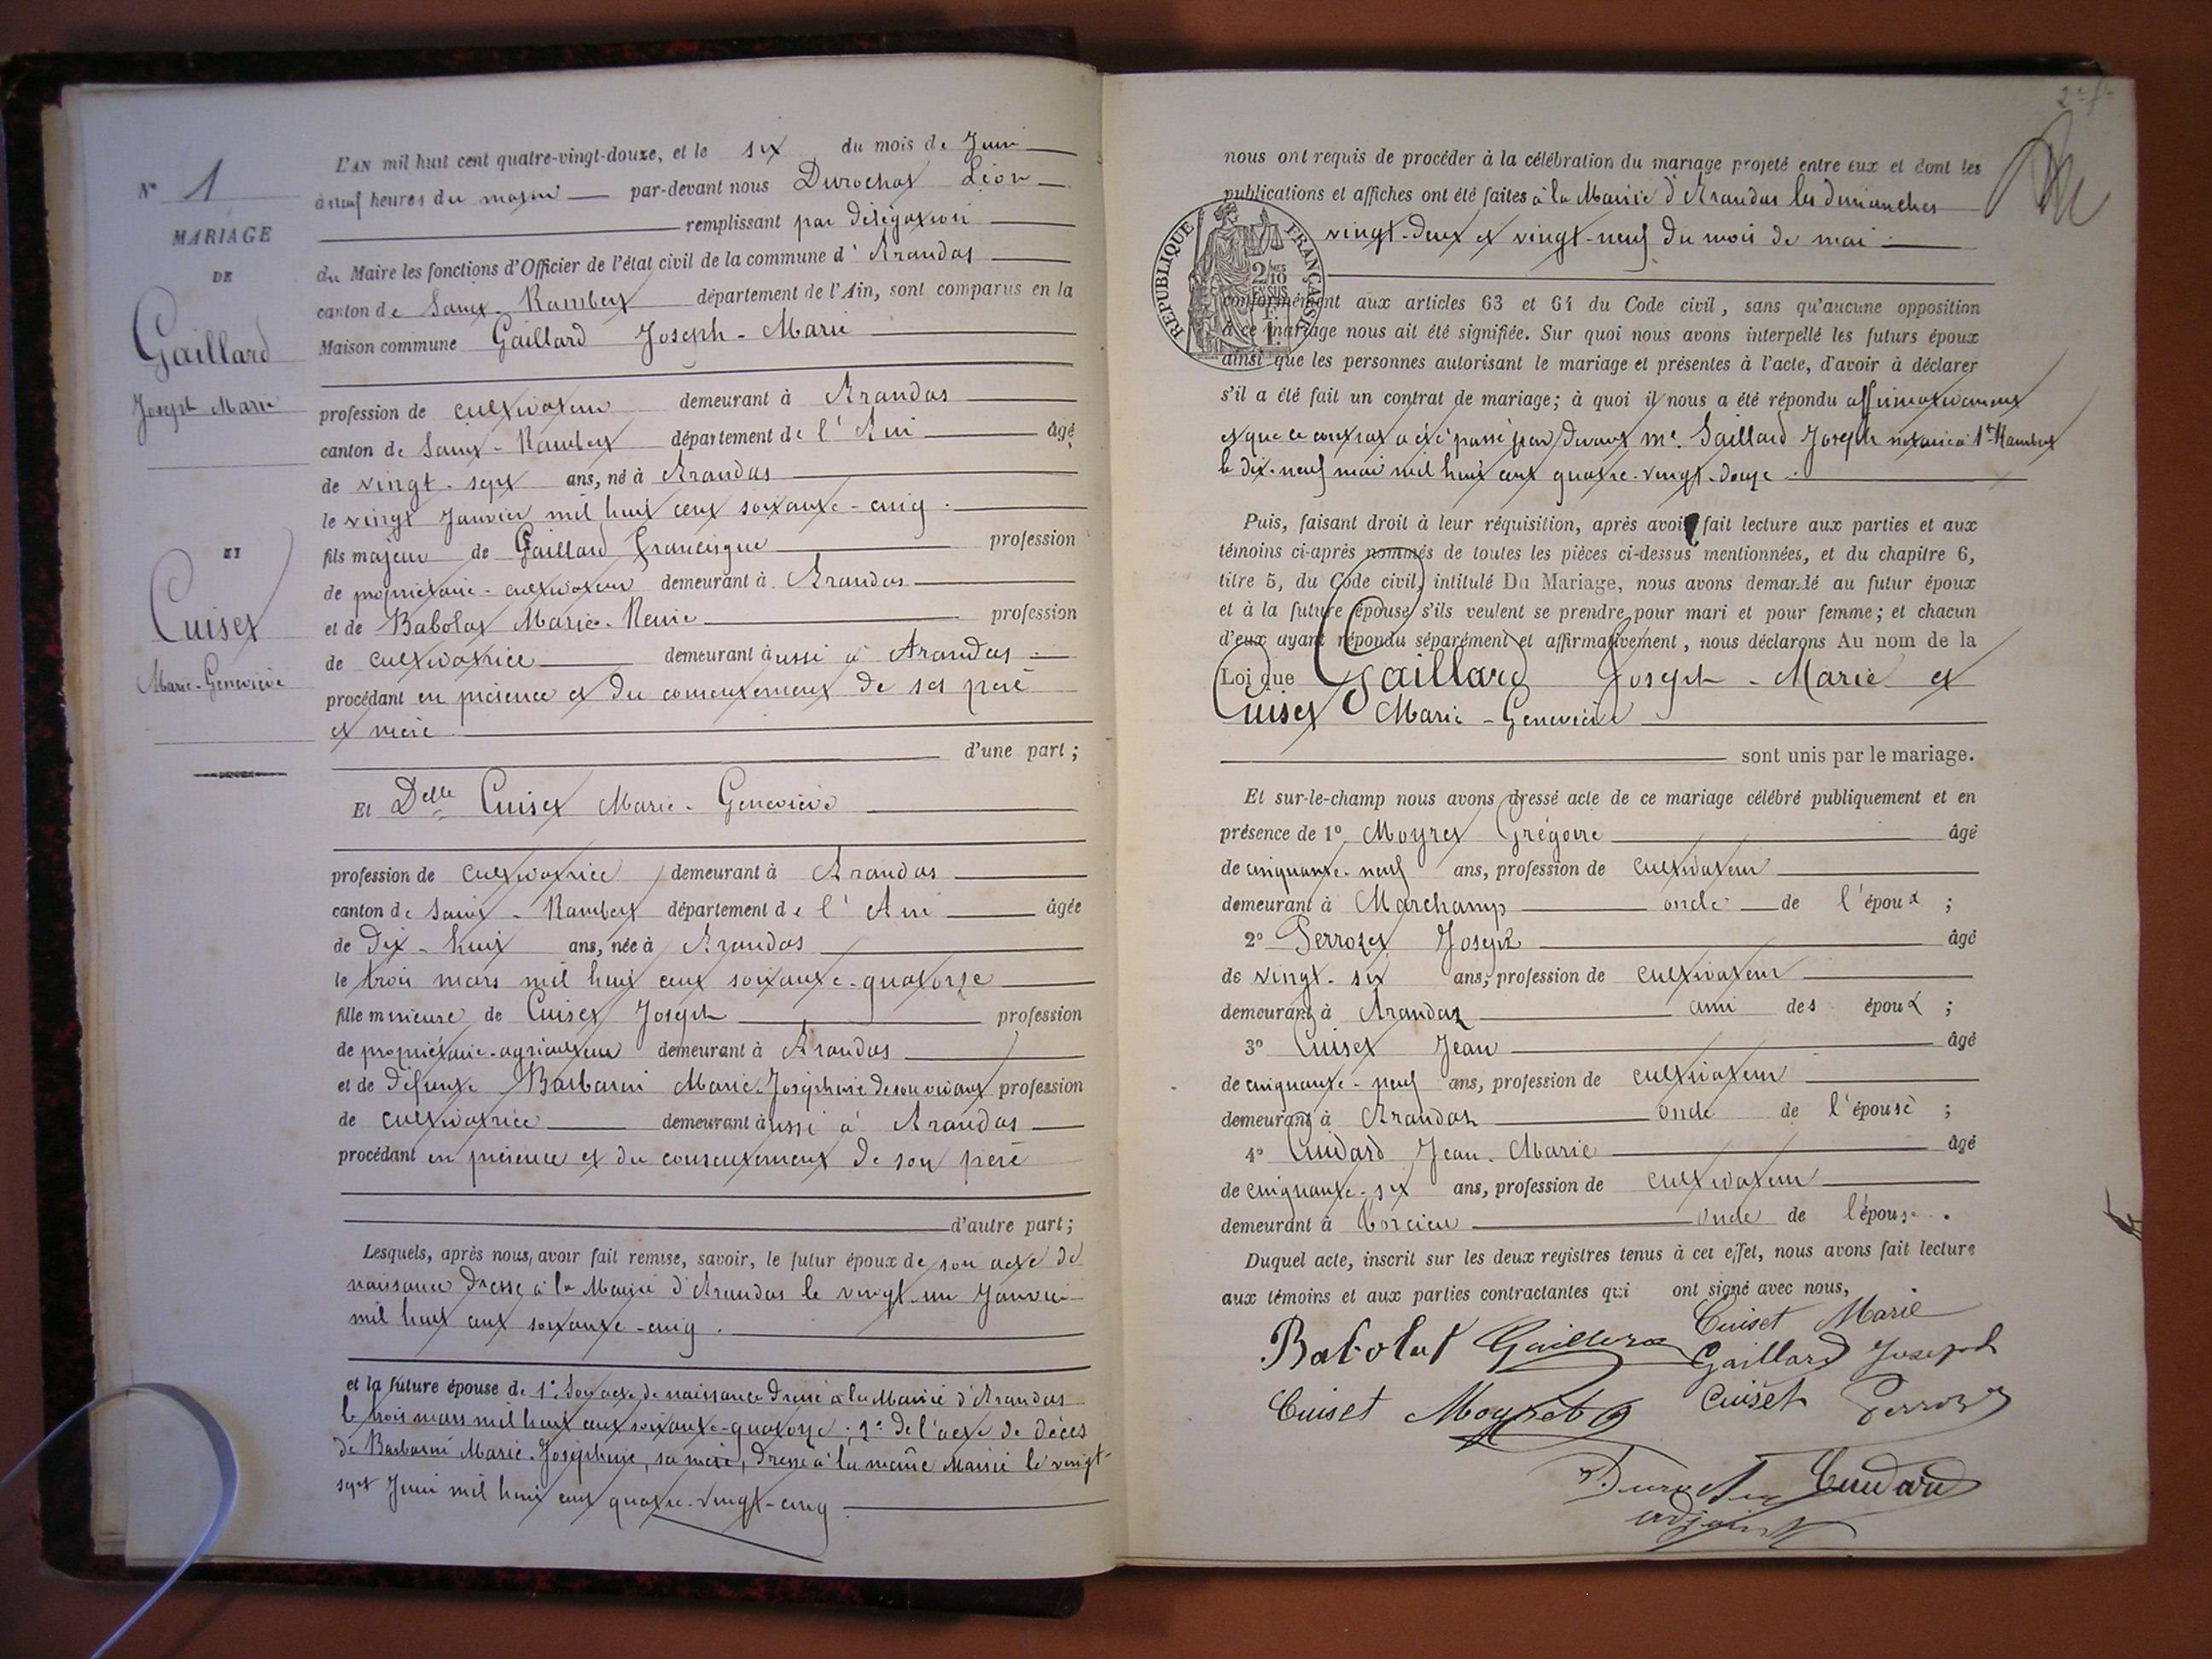 L'AN mil huit cent quatre-vingt-douze, et le six du mois de Juin
N° 1
à neuf heures du matin par-devant nous Durochat Léon
MARIAGE
remplissant par délégation
DE
du Maire les fonctions d'Officier de l'état civil de la commune d' Arandas
canton de Saint-Rambert département de l'Ain, sont comparus en la
Gaillard
Maison commune Gaillard Joseph-Marie
Joseph Marie
profession de cultivateur demeurant à Arandas
canton de Saint-Rambert département de l'Ain âgé
de vingt-sept ans, né à Arandas
le vingt Janvier mil huit cent soixante-cinq.
ET
fils majeur de Gaillard Francisque profession
de propriétaire-cultivateur demeurant à Arandas
Cuiset
et de Babolat Marie-Reine profession
Marie-Geneviève
de cultivatrice demeurant aussi à Arandas
procédant en présence et du consentement de ses père
et mère
d'une part;
Et Delle Cuiset Marie-Geneviève
profession de cultivatrice demeurant à Arandas
canton de Saint-Rambert département de l'Ain âgée
de dix-huit ans, née à Arandas
le trois mars mil huit cent soixante-quatorze
fille mineure de Cuiset Joseph profession
de propriétaire-agriculteur demeurant à Arandas
et de défunte Barbarin Marie-Joséphine de son vivant profession
de cultivatrice demeurant aussi à Arandas
procédant en présence et du consentement de son père
d'autre part;
Lesquels, après nous, avoir fait remise, savoir, le futur époux de son acte de
naissance dressé à la Mairie d'Arandas le vingt-un Janvier
mil huit cent soixante-cinq.
et la future épouse de 1° Son acte de naissance dressé à la Mairie d'Arandas
le trois mars mil huit cent soixante-quatorze; 2° de l'acte de décès
de Barbarin Marie-Joséphine, sa mère, dressé à la même Mairie le vingt-
sept Juin mil huit cent quatre-vingt-cinq.
nous ont requis de procéder à la célébration du mariage projeté entre eux et dont les
publications et affiches ont été faites à la Mairie d'Arandas les dimanches
vingt-deux et vingt-neuf du mois de mai
RÉPUBLIQUE FRANÇAISE
2/10 EN SUS
conformément aux articles 63 et 64 du Code civil, sans qu'aucune opposition
à ce mariage nous ait été signifiée. Sur quoi nous avons interpellé les futurs époux
ainsi que les personnes autorisant le mariage et présentes à l'acte, d'avoir à déclarer
s'il a été fait un contrat de mariage; à quoi il nous a été répondu affirmativement
et que ce contrat a été passé par devant Me Gaillard Joseph notaire à St-Rambert
le dix-neuf mai mil huit cent quatre-vingt-douze.
Puis, faisant droit à leur réquisition, après avoir fait lecture aux parties et aux
témoins ci-après nommés de toutes les pièces ci-dessus mentionnées, et du chapitre 6,
titre 5, du Code civil, intitulé Du Mariage, nous avons demandé au futur époux
et à la future épouse s'ils veulent se prendre pour mari et pour femme; et chacun
d'eux ayant répondu séparément et affirmativement, nous déclarons Au nom de la
Loi que Gaillard Joseph-Marie et
Cuiset Marie-Geneviève
sont unis par le mariage.
Et sur-le-champ nous avons dressé acte de ce mariage célébré publiquement et en
présence de 1° Moyret Grégoire âgé
de cinquante-neuf ans, profession de cultivateur
demeurant à Marchamp oncle de l'époux;
2° Perrozet Joseph âgé
de vingt-six ans, profession de cultivateur
demeurant à Arandas ami des époux;
3° Cuiset Jean âgé
de cinquante-neuf ans, profession de cultivateur
demeurant à Arandas oncle de l'épouse;
4° Cuidard Jean-Marie âgé
de cinquante-six ans, profession de cultivateur
demeurant à Torcieu oncle de l'épouse.
Duquel acte, inscrit sur les deux registres tenus à cet effet, nous avons fait lecture
aux témoins et aux parties contractantes qui ont signé avec nous,
Cuiset Marie
Babolat Gaillard Gaillard Joseph
Cuiset Moyret G Cuiset Perrozet
Durochat Cuidard
adjoint